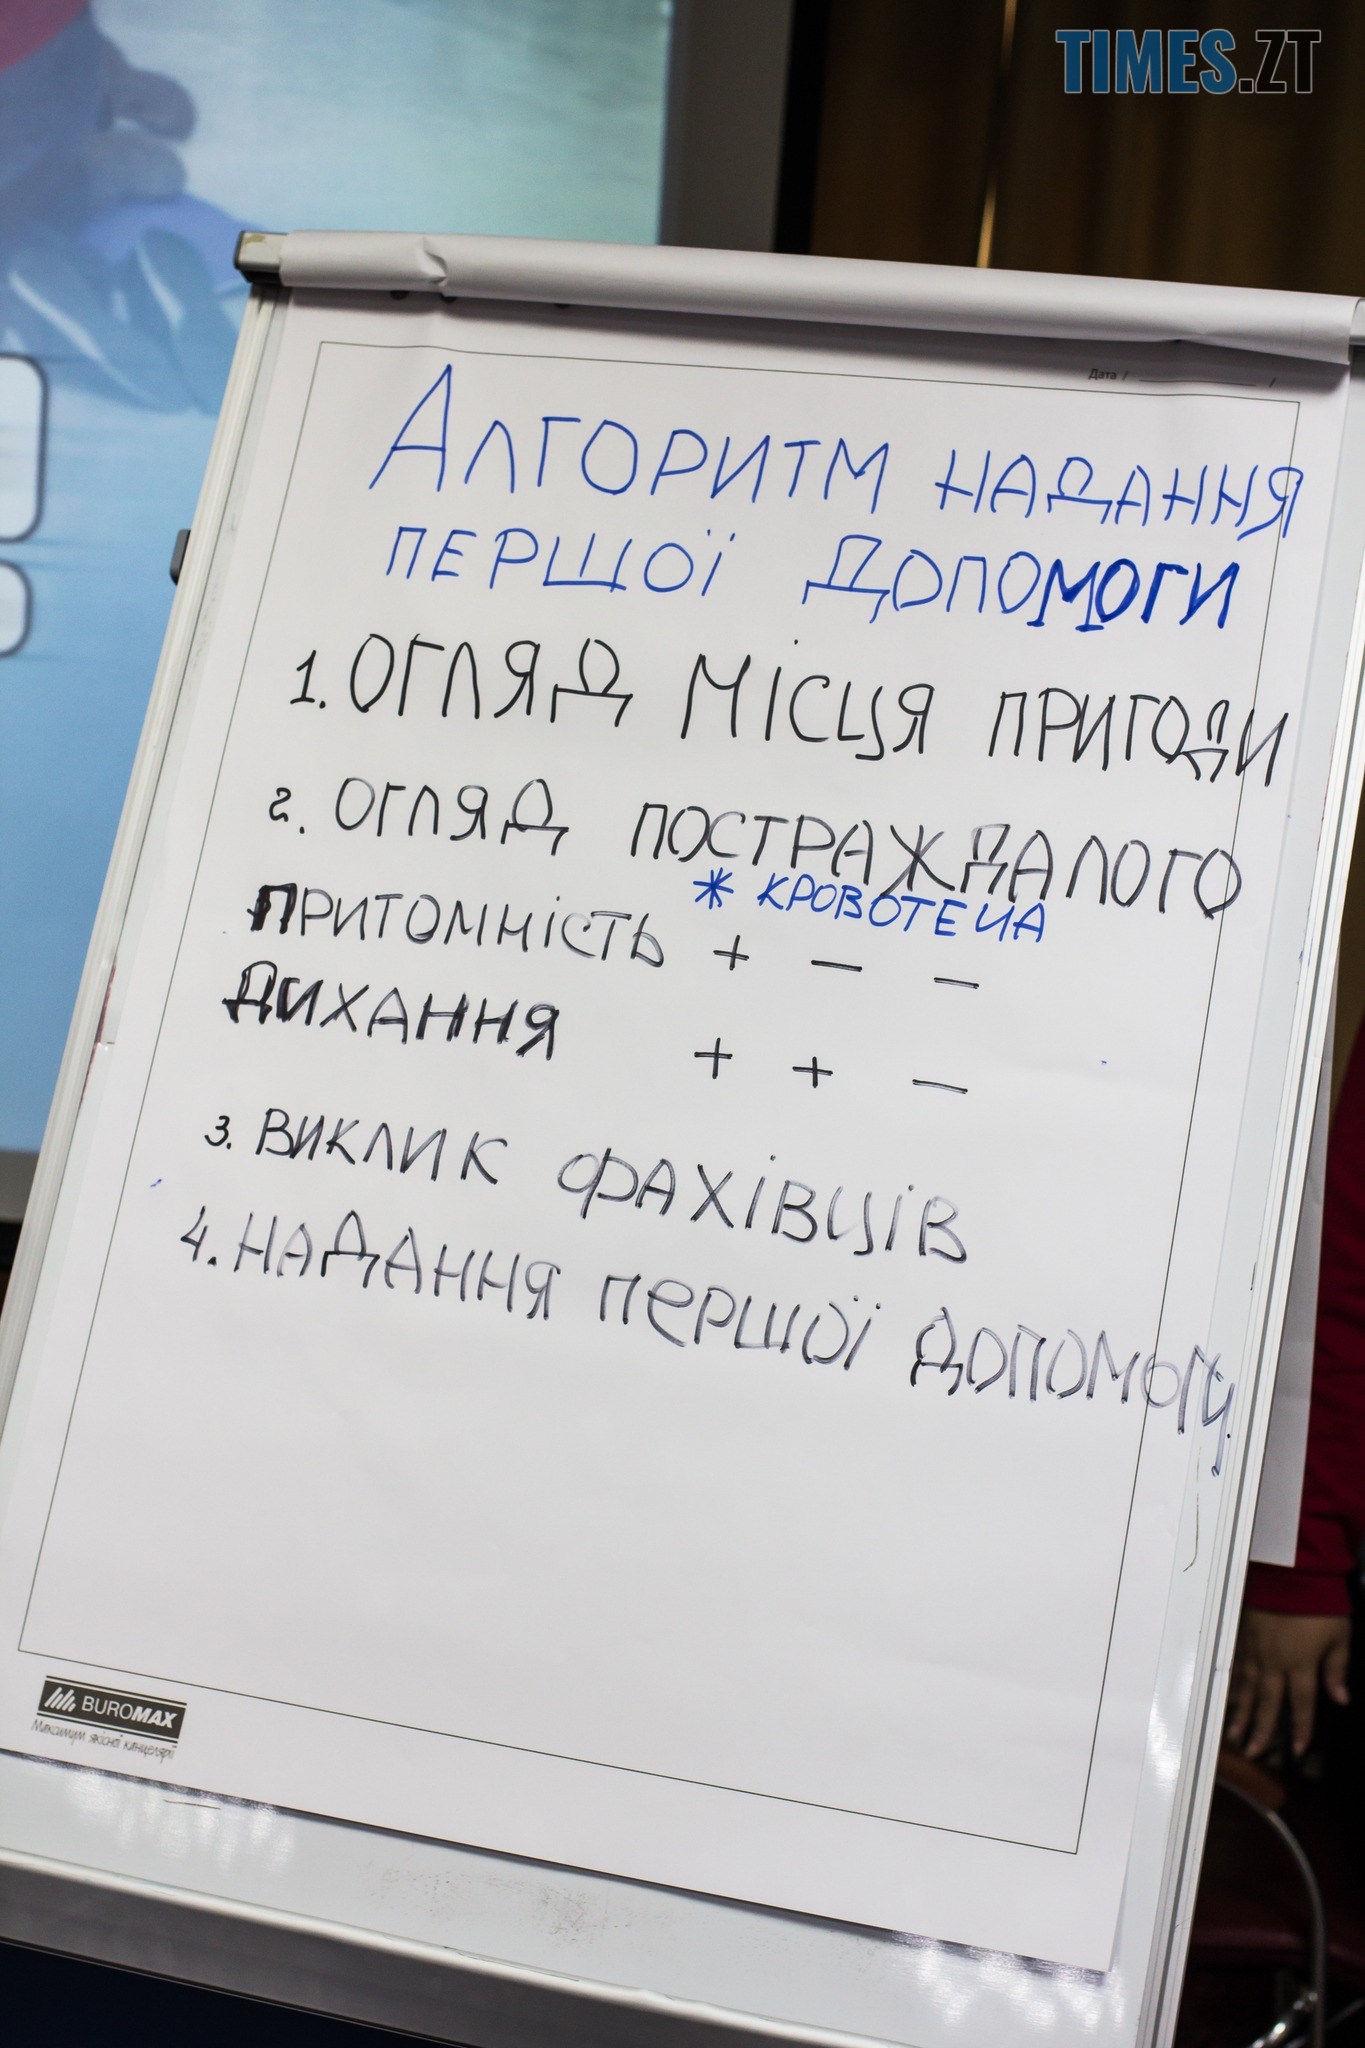 TIMES.ZT
Дата /                /
АЛГОРИТМ НАДАННЯ
ПЕРШОЇ ДОПОМОГИ
1. ОГЛЯД МІСЦЯ ПРИГОДИ
2. ОГЛЯД ПОСТРАЖДАЛОГО
* КРОВОТЕЧА
ПРИТОМНІСТЬ + – –
ДИХАННЯ + + –
3. ВИКЛИК ФАХІВЦІВ
4. НАДАННЯ ПЕРШОЇ ДОПОМОГИ.
BUROMAX
Максимум якісної канцелярії